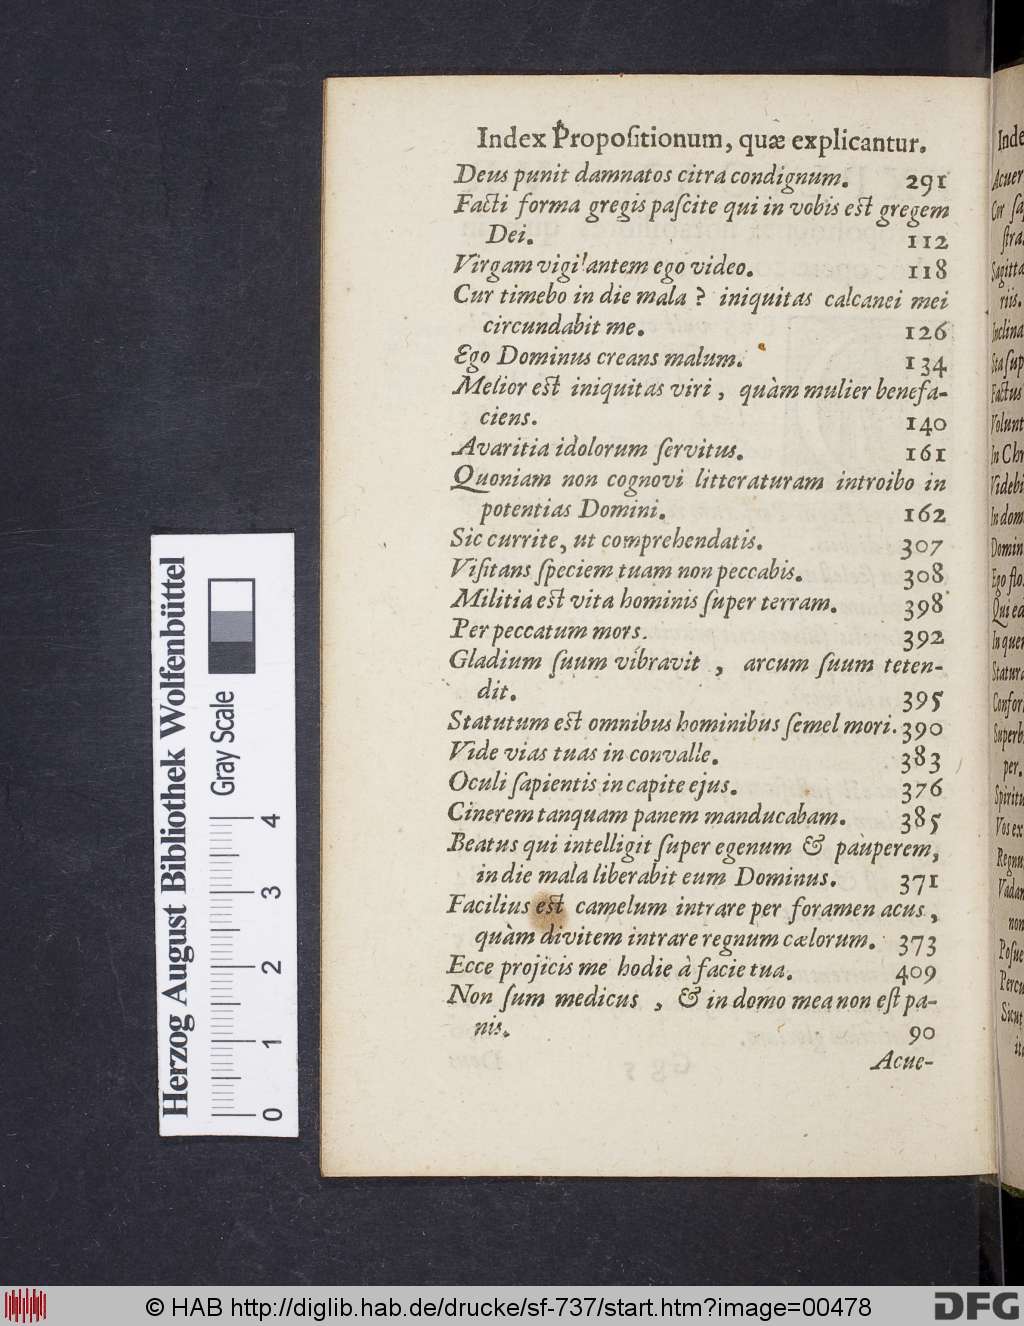 Index Propoſitionum, quæ explicantur.
Deus punit damnatos citra condignum. 291
Facti forma gregis paſcite qui in vobis est gregem
Dei. 112
Virgam vigilantem ego video. 118
Cur timebo in die mala ? iniquitas calcanei mei
circundabit me. 126
Ego Dominus creans malum. 134
Melior est iniquitas viri, quàm mulier benefa-
ciens. 140
Avaritia idolorum ſervitus. 161
Quoniam non cognovi litteraturam introibo in
potentias Domini. 162
Sic currite, ut comprehendatis. 307
Viſitans ſpeciem tuam non peccabis. 308
Militia est vita hominis ſuper terram. 398
Per peccatum mors. 392
Gladium ſuum vibravit, arcum ſuum teten-
dit. 395
Statutum est omnibus hominibus ſemel mori. 390
Vide vias tuas in convalle. 383
Oculi ſapientis in capite ejus. 376
Cinerem tanquam panem manducabam. 385
Beatus qui intelligit ſuper egenum & pauperem,
in die mala liberabit eum Dominus. 371
Facilius est camelum intrare per foramen acus,
quàm divitem intrare regnum cælorum. 373
Ecce projicis me hodie à facie tua. 409
Non ſum medicus, & in domo mea non eſt pa-
nis. 90
Acue-
Inde
Acuer
Cor ſa
ſtra.
Sagitta
riis.
Inclina
Sta ſup
Factus
Volunt
In Chr
Videbi
In dom
Domin
Ego flo
Qui ed
In quem
Statura
Confor
Superb
per.
Spiritu
Vos ex
Regnu
Vadam
non
Poſue
Percu
Sicut
Herzog August Bibliothek Wolfenbüttel
Gray Scale
0 1 2 3 4
© HAB http://diglib.hab.de/drucke/sf-737/start.htm?image=00478
DFG